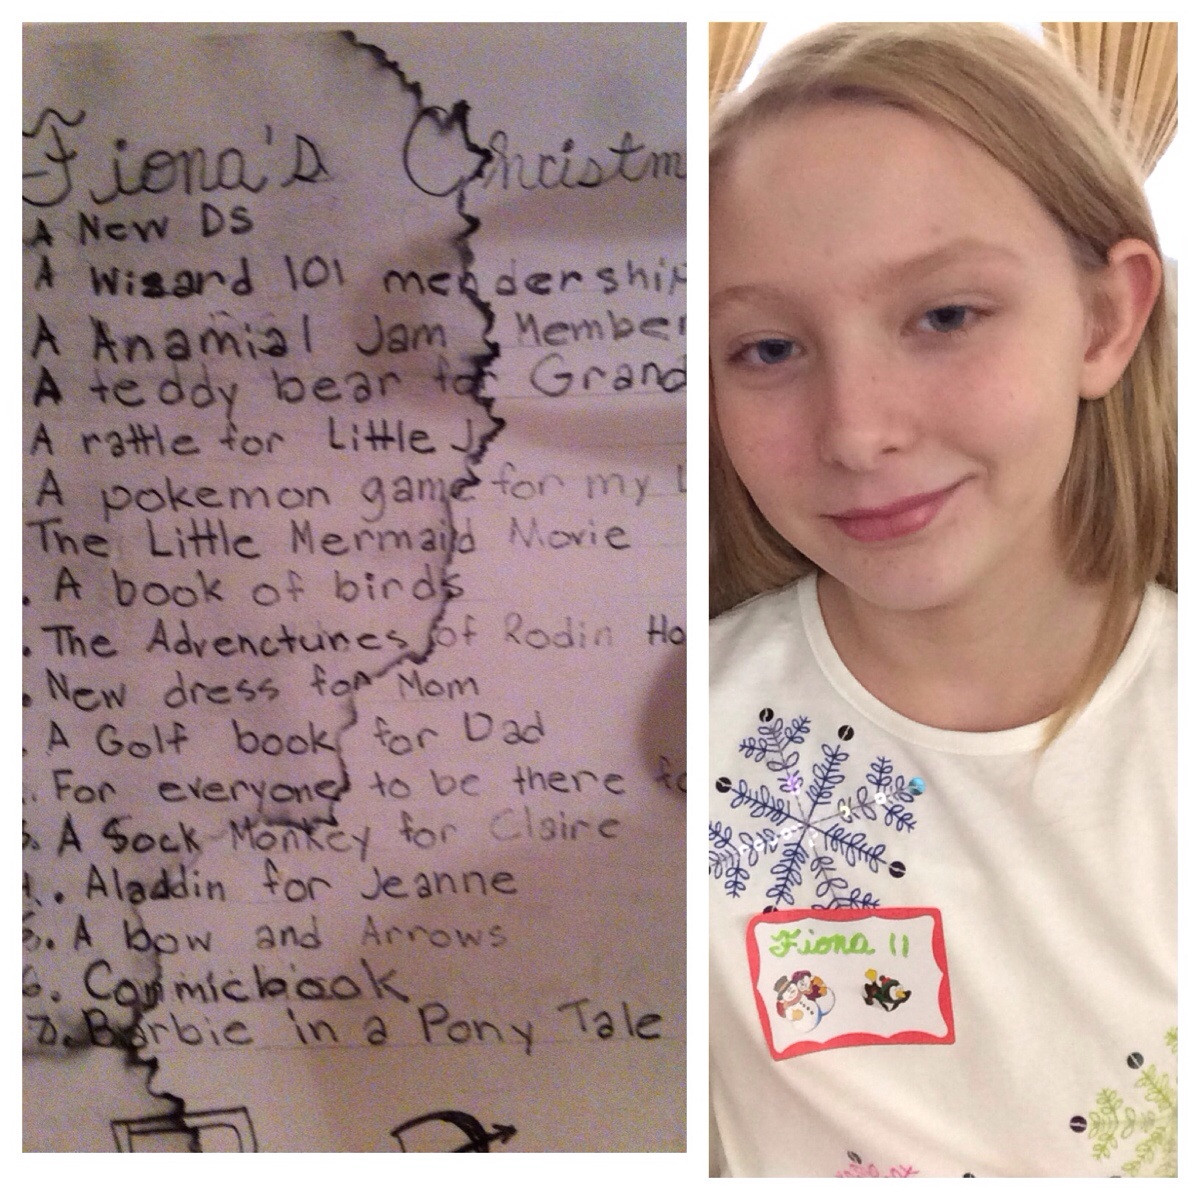 Fiona's Christm
A New DS
A Wizard 101 mendership
A Anamial Jam Member
A teddy bear for Grand
A rattle for Little J
A pokemon game for my L
The Little Mermaid Movie
. A book of birds
. The Advenctunes of Rodin Ho
. New dress for Mom
. A Golf book for Dad
. For everyone to be there fo
. A Sock Monkey for Claire
. Aladdin for Jeanne
. A bow and Arrows
6. Commicbook
7. Barbie in a Pony Tale
Fiona 11